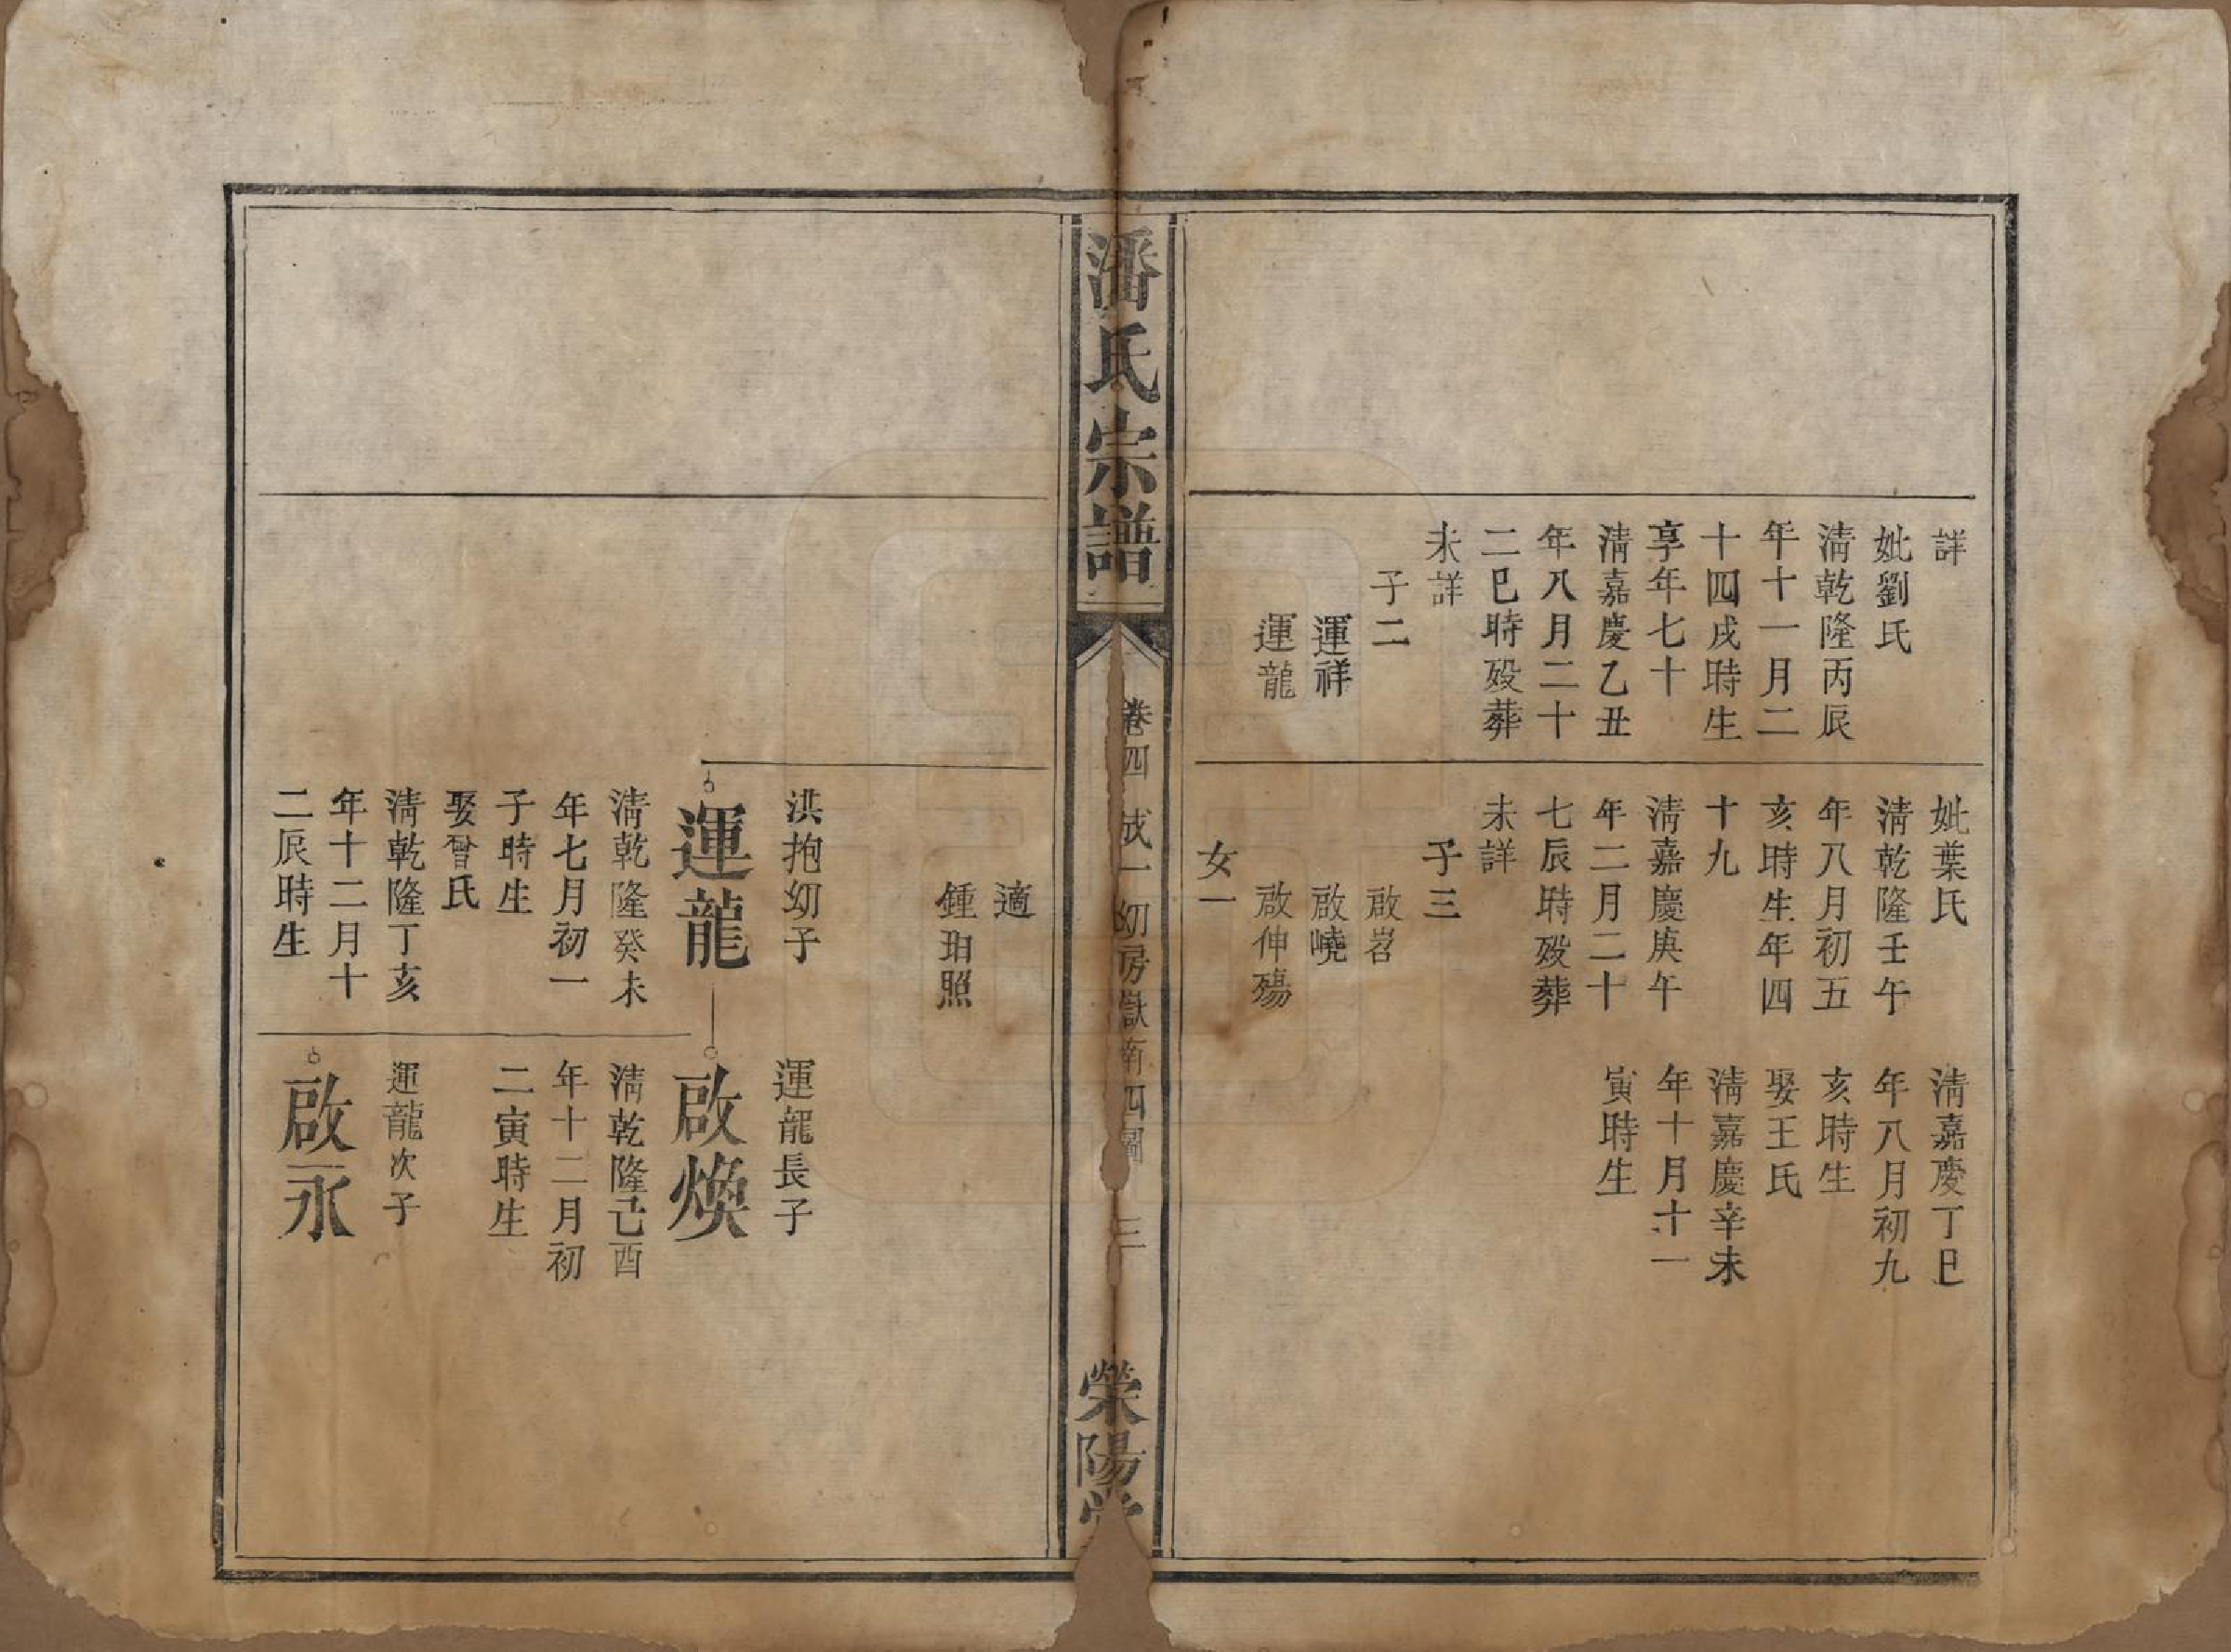 詳
妣劉氏
淸乾隆丙辰
年十一月二
十四戌時生
享年七十
淸嘉慶乙丑
年八月二十
二巳時殁葬
未詳
子二
運祥
運龍
妣葉氏
淸乾隆壬午
年八月初五
亥時生年四
十九
淸嘉慶庚午
年二月二十
七辰時殁葬
未詳
子三
啟岧
啟嶢
啟伸殤
女一
淸嘉慶丁巳
年八月初九
亥時生
娶王氏
淸嘉慶辛未
年十月十一
寅時生
潘氏宗譜
卷四 成一幼房獄南四圖 三
榮陽堂
適
鍾珀照
洪抱幼子
運龍
淸乾隆癸未
年七月初一
子時生
娶曾氏
淸乾隆丁亥
年十二月十
二辰時生
運龍長子
啟煥
淸乾隆己酉
年十二月初
二寅時生
運龍次子
啟永